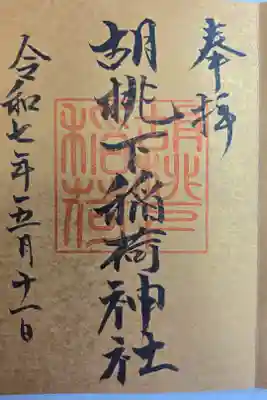 奉拝
胡桃下稲荷神社
令和七年五月十一日